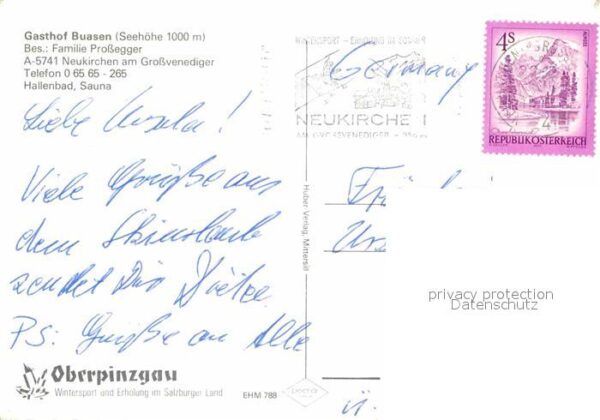 Gasthof Buasen (Seehöhe 1000 m)
Bes.: Familie Proßegger
A-5741 Neukirchen am Großvenediger
Telefon 0 65 65 - 265
Hallenbad, Sauna
Germany
4S
REPUBLIK ÖSTERREICH
WINTERSPORT - ERHOLUNG IM SOMMER
NEUKIRCHE
AM GROSSVENEDIGER
Liebe Ursula!
Viele Grüße aus
dem Skiurlaub
sendet Dir
PS: Grüße an Alle
Huber Verlag, Mittersill
Fr
Ur
privacy protection
Datenschutz
Oberpinzgau
Wintersport und Erholung im Salzburger Land
EHM 788